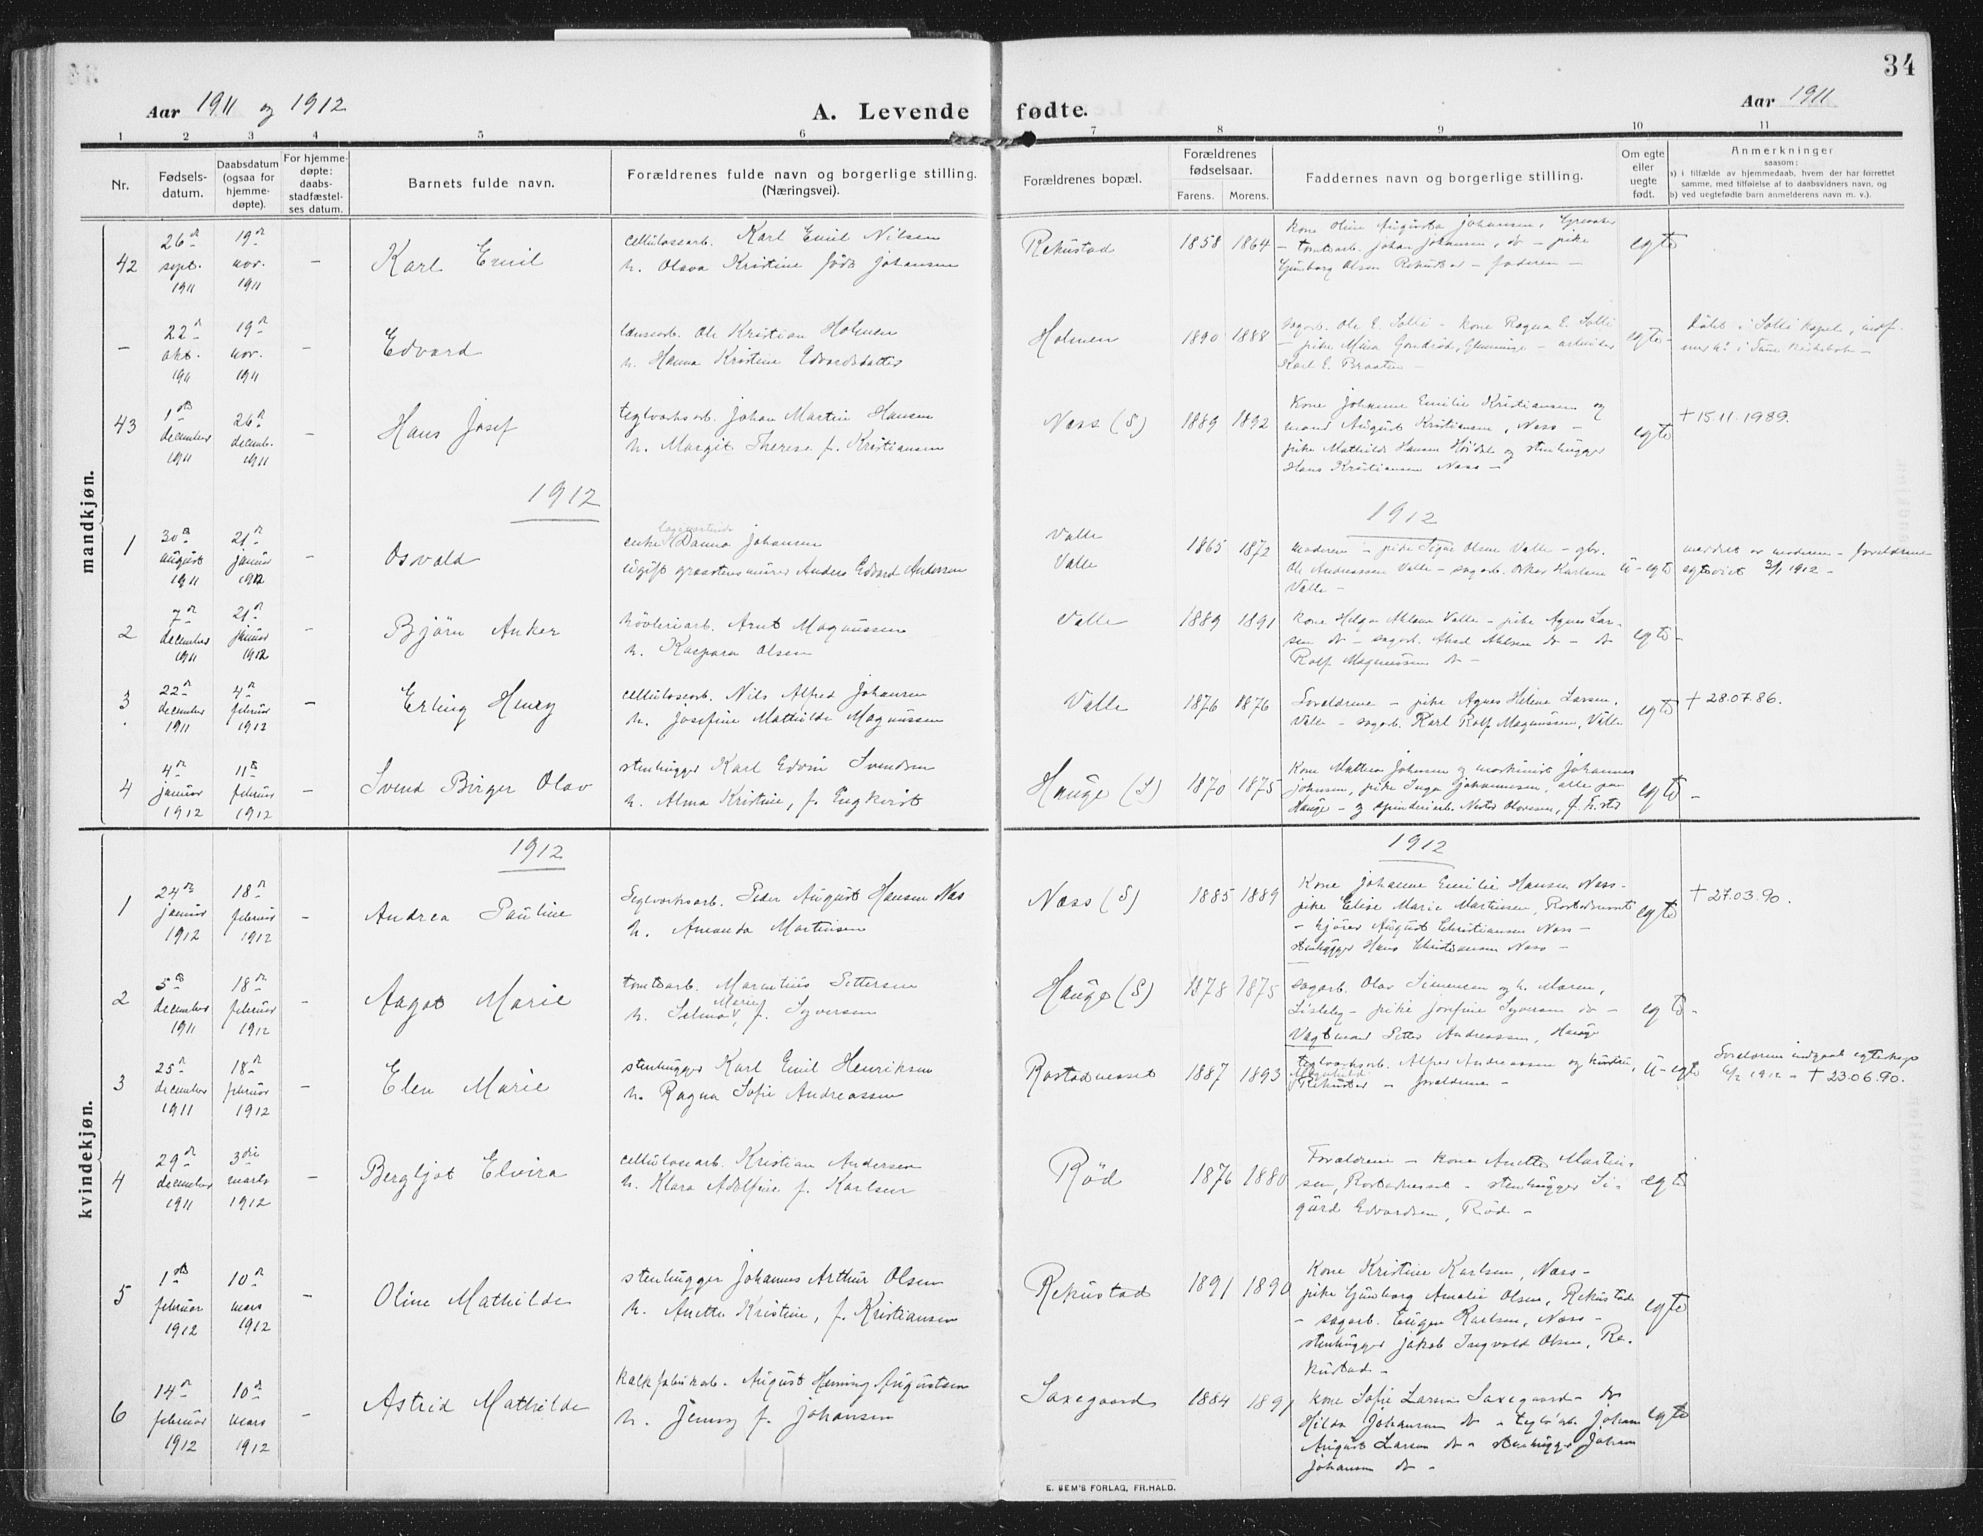 34
Aar 1911 og 1912
A. Levende fødte.
Aar 1911
1 2 3 4 5 6 7 8 9 10 11
Nr.
Fødsels-
datum.
Daabsdatum
(ogsaa for
hjemme-
døpte).
For hjemme-
døpte:
daabs-
stadfæstel-
ses datum.
Barnets fulde navn.
Forældrenes fulde navn og borgerlige stilling.
(Næringsvei).
Forældrenes bopæl.
Forældrenes
fødselsaar.
Farens. Morens.
Faddernes navn og borgerlige stilling.
Om egte
eller
uegte
født.
Anmerkninger
saasom:
a) i tilfælde av hjemmedaab, hvem der har forrettet
samme, med tilføielse af to daabsvidners navn, og
b) ved uegtefødte barn anmelderens navn m. v.).
mandkjøn.
42
26de
sept.
1911
19de
nov.
1911
–
Karl Emil
cellulosearb. Karl Emil Nilsen
h. Olava Kristine født Johansen
Rekustad
1858 1864
Kone Oline Augusta Johansen, Greaaker
– tomtearb. Johan Johansen, do – pike
Gunborg Olsen Rekustad – faderen –
egte
–
22de
okt.
1911
19de
nov.
1911
–
Edvard
lensearb. Ole Kristian Holmen
h. Hanna Kristine Edvardsdatter
Holmen
1890 1888
sagarb. Ole E. Solli – kone Ragna E. Solli
– pike Mina
– arbeider
Karl E. Braaten –
egte –
Døbt i Solli kapel, indf.
under No i Tune kirkebok –
43
1ste
december
1911
26de
decemb.
1911
–
Hans Josef
teglverksarb. Johan Martin Hansen
h. Margit Therese f. Kristiansen
Næss (S)
1889 1892
Kone Johanne Emilie Kristiansen og
mand August Kristiansen, Næss –
pike Mathilde Hansen Høidal og stenhugger
Hans Kristiansen Næss –
egte
+ 15.11.1989.
1912
1912
1
30te
august
1911
21de
januar
1912
–
Osvald
enke Danna Johansen
ugift graastensmurer Anders Edvard Andersen
Valle
Valle
1865 1872
moderen – pike Signe Olsen Valle – gbr.
Ol. Andreassen Valle – sagarb. Oskar Karlsen
Valle –
u-egte
meldt av moderen – forældrene
egteviet 3/1 1912 –
2
7de
december
1911
21de
januar
1912
–
Bjørn Anker
høvleriarb. Arnt Magnussen
h. Kaspara Olsen
Valle
1889 1891
Kone Helga Ahlsen Valle – pike Agnes Lar-
sen do – sagarb. Aksel Ahlsen do – do
Rolf Magnussen do –
egte –
3
22de
december
1911
4de
februar
1912
–
Erling Henry
cellulosearb. Nils Alfred Johansen
h. Josefine Mathilde Magnussen
Valle
1876 1876
Forældrene – pike Agnes Helene Larsen,
Valle – sagarb. Karl Rolf Magnussen, Valle
egte
+ 28.07.86.
4
4de
januar
1912
11te
februar
1912
–
Svend Birger Olav
stenhugger Karl Edvin Svendsen
h. Alma Kristine, f. Engkvist
Hauge (S)
1870 1875
Kone Mathea Johnsen og maskinist Johannes
Johnsen, pike Inga Johannesen, alle paa
Hauge – og spinderiarb.
egte –
kvindekjøn.
1912
1912
1
24de
januar
1912
18de
februar
1912
–
Andrea Pauline
Teglverksarb. Peder August Hansen Næs
h. Amanda Martinsen
Næss (S)
1885 1889
Kone Johanne Emilie Hansen Næss –
pike Elise Marie Martinsen, Rostadnesset
– kjører August Christiansen Næss –
stenhugger Hans Christiansen Næss –
egte
+ 27.03.90.
2
5te
december
1911
18de
februar
1912
–
Aagot Marie
tomtearb. Marentius Pettersen
h. Selma Marie, f. Syversen
Hauge (S)
1878 1875
sagarb. Olav Simensen og h. Maren,
Lisleby – pike Josefine Syversen do –
Vagtmand Petter Andreassen, Hauge
egte –
3
25de
december
1911
18de
februar
1912
–
Elen Marie
stenhugger Karl Emil Henriksen
h. Ragna Sofie Andreassen
Rostadnesset
1887 1893
teglverksarb. Alfred Andreassen og hustru,
Rekustad – forældrene –
u-egte
Foreldrene indgaat egteskap
1912 – + 23.06.90.
4
29de
december
1911
3die
marts
1912
–
Bergljot Elvira
cellulosearb. Kristian Andersen
h. Klara Adolfine f. Karlsen
Rød
1876 1880
Forældrene – kone Anette Martin-
sen, Rostadnesset – stenhugger Si-
gurd Edvardsen, Rød –
egte
5
1ste
februar
1912
10de
mars
1912
–
Oline Mathilde
stenhugger Johannes Arthur Olsen
h. Anette Kristine, f. Kristiansen
Rekustad
1891 1890
Kone Kristine Karlsen, Næss –
pike Gunborg Amalie Olsen, Rekustad
– sagarb. Eugen Karlsen, Næss –
stenhugger Jakob Ingvald Olsen, Re-
kustad –
egte
6
14de
februar
1912
10de
mars
1912
–
Astrid Mathilde
kalkfabrikarb. August Henning Augustsen
h. Jenny f. Johansen
Saxegaard
1884 1891
Kone Sofie Larsen Saxegaard – do
Hilda Johansen do – teglv.arb. Johan
August Larsen do – stenhugger Johan
Johansen do –
egte
E. SEM'S FORLAG, FR.HALD.